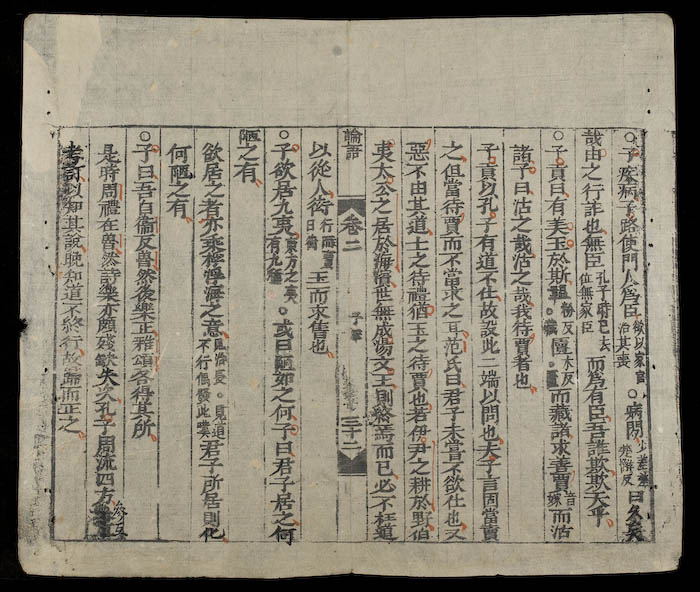 ○子疾病子路使門人爲臣欲以家官治其喪○病間少差曰久矣
哉由之行詐也無臣孔子時已去位無家臣而爲有臣吾誰欺欺天乎
○子貢曰有美玉於斯韞匵而藏諸求善賈音嫁而沽
諸子曰沽之哉沽之哉我待賈者也
子貢以孔子有道不仕故設此二端以問也夫子言固當賣
之但當待賈而不當求之耳范氏曰君子未嘗不欲仕也又
惡不由其道士之待禮猶玉之待賈也若伊尹之耕於野伯
夷太公之居於海濱世無成湯文王則終焉而已必不枉道
論語 卷二 子罕 三十二
以從人衒行且賣曰衒玉而求售也
○子欲居九夷東方之夷有九種○或曰陋如之何子曰君子居之何
陋之有
欲居之者亦乘桴浮海之意見治長○見道不行偶發此嘆君子所居則化
何陋之有
○子曰吾自衞反魯然後樂正雅頌各得其所
是時周禮在魯然詩樂亦頗殘缺失次孔子周流四方參互
考訂以知其說晚知道不終行故歸而正之